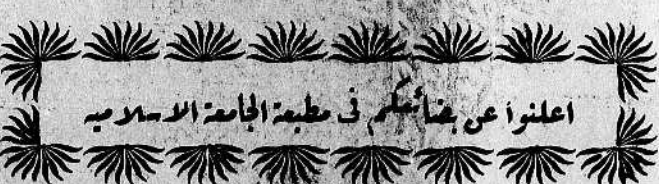 اعلنوا عن بضائعكم فى مطبعة الجامعة الاسلاميه